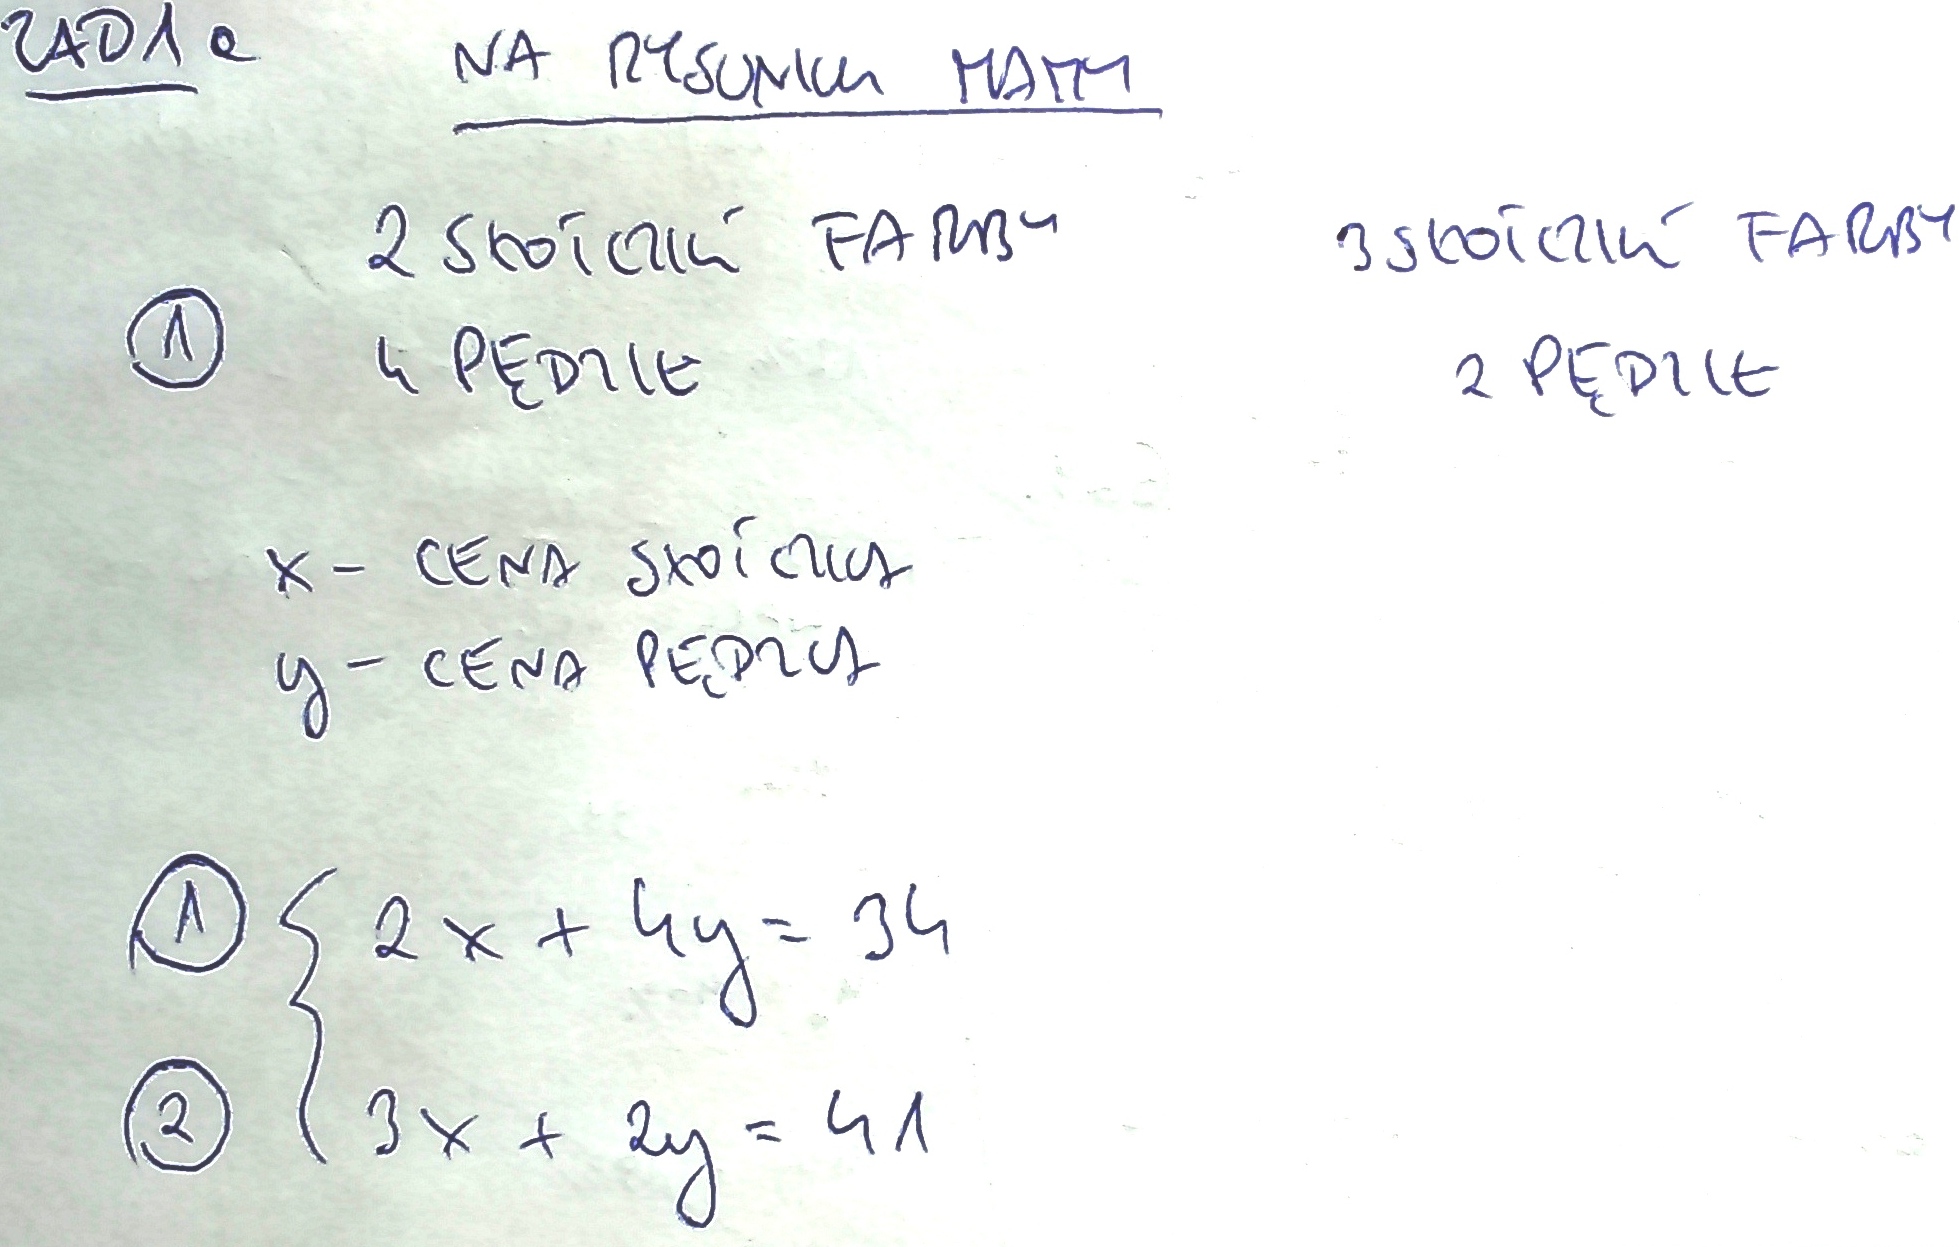 ZAD1a NA RYSUNKU MAMY
2 SŁOICZKI FARBY 3 SŁOICZKI FARBY
① 4 PĘDZLE 2 PĘDZLE
x - CENA SŁOICZKA
y - CENA PĘDZLA
① { 2x + 4y = 34
② 3x + 2y = 41